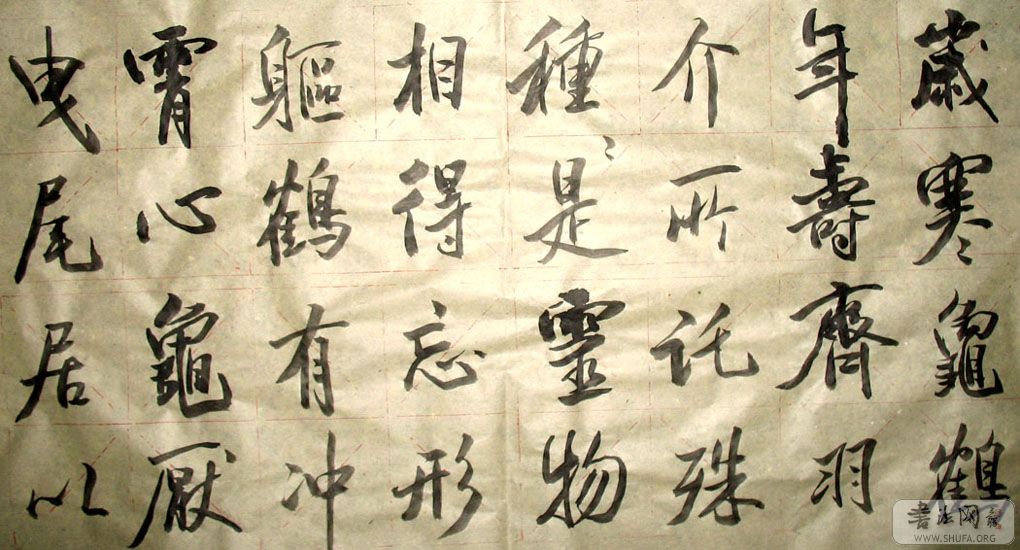 歲寒龜鶴
年壽齊羽
介所託殊
種種是靈物
相得忘形
軀鶴有冲
霄心龜厭
曳尾居以
書法网
WWW.SHUFA.ORG